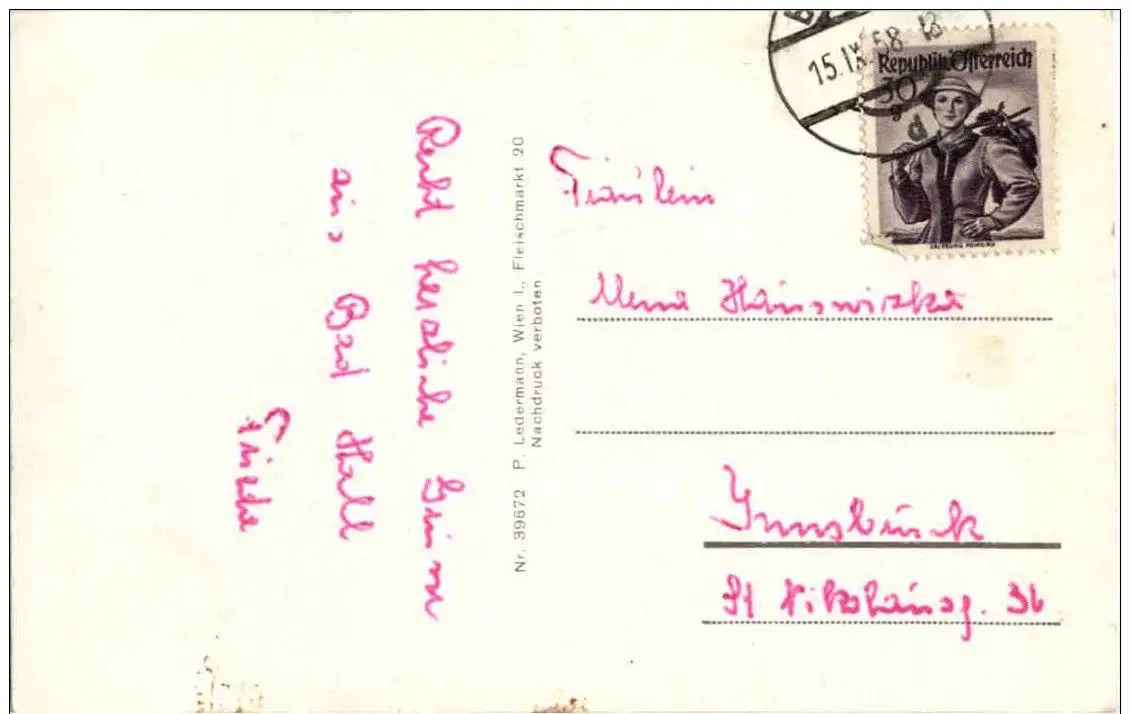 Recht herzliche Grüsse
aus Bad Hall
Friede
Nr. 39672 P. Ledermann, Wien I., Fleischmarkt 20
Nachdruck verboten
15.IX.58-18
d
Republik Österreich
30
g
Fräulein
Hauswirzka
Innsbruck
St Nikolausg. 36